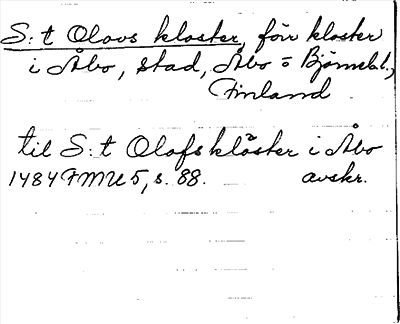 S:t Olovs kloster, förr kloster
i Åbo, stad, Åbo o Björneb.l.,
Finland
til S:t Olofs klöster i Åbo
1484 FMU 5, s. 88. avskr.